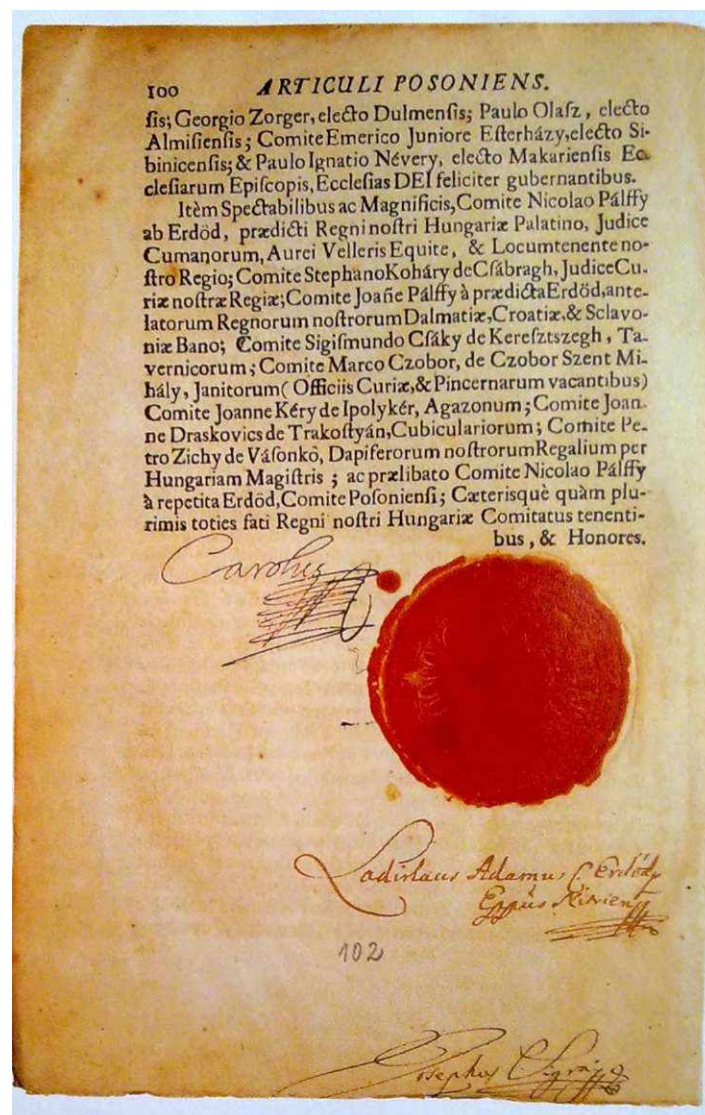 100 ARTICULI POSONIENS.
ſis; Georgio Zorger, electo Dulmenſis; Paulo Olaſz, electo
Almiſienſis; Comite Emerico Juniore Eſterházy, electo Si-
binicenſis; & Paulo Ignatio Névery, electo Makarienſis Ec-
cleſiarum Epiſcopis, Ecclesias DEI feliciter gubernantibus.
Itèm Spectabilibus ac Magnificis, Comite Nicolao Pálffy
ab Erdöd, prædicti Regni noſtri Hungariæ Palatino, Judice
Cumanorum, Aurei Velleris Equite, & Locumtenente no-
ſtro Regio; Comite Stephano Koháry de Cſábragh, Judice Cu-
riæ noſtræ Regiæ; Comite Joañe Pálffy à prædicta Erdöd, ante-
latorum Regnorum noſtrorum Dalmatiæ, Croatiæ, & Sclavo-
niæ Bano; Comite Sigiſmundo Cſáky de Kereſztszegh, Ta-
vernicorum; Comite Marco Czobor, de Czobor Szent Mi-
hály, Janitorum ( Officiis Curiæ, & Pincernarum vacantibus)
Comite Joanne Kéry de Ipolykér, Agazonum; Comite Joan-
ne Draskovics de Trakoſtyán, Cubiculariorum; Comite Pe-
tro Zichy de Váſonkò, Dapiferorum noſtrorum Regalium per
Hungariam Magiſtris; ac prælibato Comite Nicolao Pálffy
à repetita Erdöd, Comite Poſonienſi; Cæterisquè quàm plu-
rimis toties fati Regni noſtri Hungariæ Comitatus tenenti-
bus, & Honores.
Carolus
Ladislaus Adamus C Erdődy
Eppüs Nitriens
102
Josephus